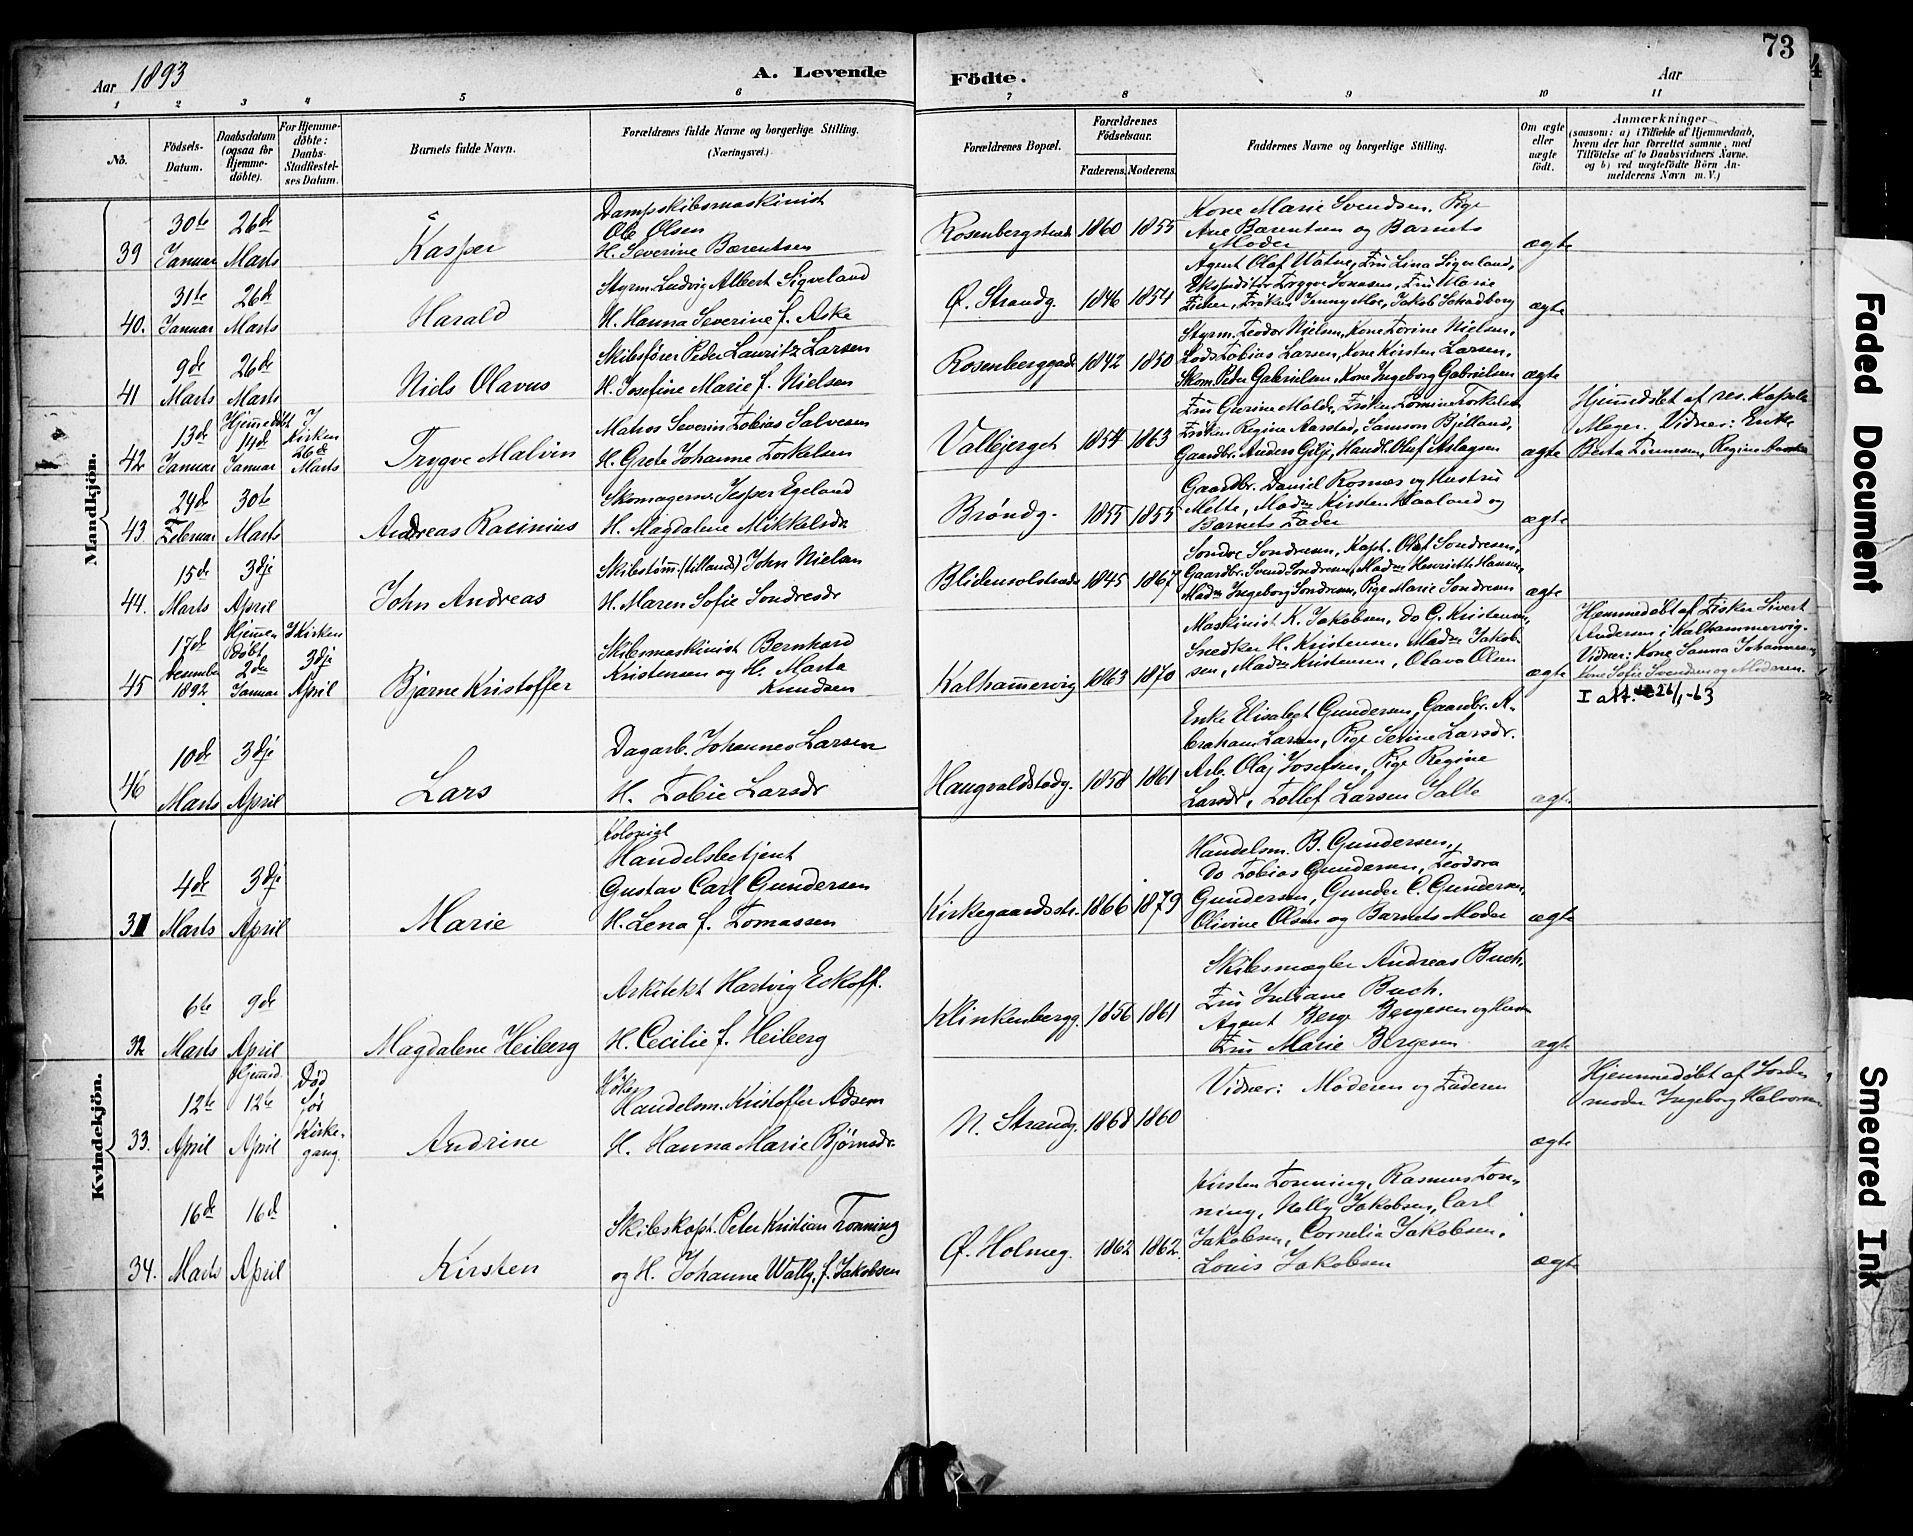 73
Aar 1893
A. Levende Födte.
Aar
1 2 3 4 5 6 7 8 9 10 11
No.
Födsels-Datum.
Daabsdatum (ogsaa for Hjemme-döbte).
For Hjemme-döbte: Daabs-Stadfæstel-ses Datum.
Barnets fulde Navn.
Forældrenes fulde Navne og borgerlige Stilling.
(Næringsvei.)
Forældrenes Bopæl.
Forældrenes Födselsaar.
Faderens. Moderens.
Faddernes Navne og borgerlige Stilling.
Om ægte eller uægte født.
Anmærkninger
(saasom: a) i Tilfælde af Hjemmedaab,
hvem der har forrettet samme, med
Tilföielse af to Daabsvidners Navne,
og b) ved uægtefödte Börn An-
melderens Navn m. V.)
Mandkjön.
39
30te Januar
26de Marts
Kasper
Dampskibsmaskinist
Ole Olsen
H. Severine Bærentsen
Rosenbergstræde
1860 1855
Kone Marie Svendsen, Pige
Ane Bærentsen og Barnets
Moder
ægte
40.
31te Januar
26de Marts
Harald
Styrm. Ludvig Albert Sigveland
H. Hanna Severine f. Aske
Ø. Strandg.
1846 1854
Agent Olaf Watne, Fru Lina Sigveland,
Ekspeditør Trygve Jonassen, Fru Marie
Fisker, Frøken Jenny Moe, Jakob Schadberg
ægte
41
9de Marts
26de Marts
Niels Olavus
Skibsfører Peder Lauritz Larsen
H. Josefine Marie f. Nielsen
Rosenberggade
1842 1850
Styrm. Teodor Nielsen, Kone Torine Nielsen,
Lods Tobias Larsen, Kone Kirsten Larsen,
Skom. Peder Gabrielsen, Kone Ingeborg Gabrielsen
ægte
42
13de Januar
Hjemmedøbt 14de Januar
I Kirken 26de Marts
Trygve Malvin
Matros Severin Tobias Salvesen
H. Grete Johanne Torkelsen
Valbjerget
1854 1863
Fru Gurine Molde, Frøken Tomine Torkelsen
Frøken Regine Aarstad, Samson Bjelland,
Gaardbr. Anders Gilje, Handl. Oluf Aslagsen
ægte
Hjemmedøbt af res. Kapelan
Mager. Vidner: Enke
Berta Finnesen, Regine Aarstad
43.
24de Februar
30te Marts
Andreas Rasinius
Skomagersv. Jesper Egeland
H. Magdalene Mikkelsdr
Brøndg.
1855 1855
Gaardbr. Daniel Rosnæs og Hustru
Mette, Madm Kirsten Haaland og
Barnets Fader
ægte
44.
15de Marts
3dje April
John Andreas
Skibstømm. (tillands) John Nielsen
H. Maren Sofie Sondresdr
Blidensolstræde
1845 1867
Sondre Sondresen, Kapt. Oluf Sondresen,
Gaardbr. Svend Sondresen, Madm Henriette Hansen,
Madm Ingeborg Sondresen, Pige Marie Sondresen
ægte
45
17de Desember 1892
Hjemmedøbt 2den Januar
I Kirken 3dje April
Bjarne Kristoffer
Skibsmaskinist Bernhard
Kristensen og H. Marta
Knudsen
Kalhammervig
1863 1870
Maskinist K. Jakobsen, Do G. Kristensen,
Snedker H. Kristensen, Madm Jakob-
sen, Madm Kristensen, Olava Olsen
ægte
Hjemmedøbt af Fisker Sivert
Andersen i Kalhammervig.
Vidner: Kone Sanna Johannesen
Kone Sofie Svendsen og Moderen.
I att. 26/1-63
46
10de Marts
3dje April
Lars
Dagarb. Johannes Larsen
H. Tobie Larsdr
Haugvaldstadg.
1858 1861
Enke Elisabet Gundersen, Gaardbr. A-
braham Larsen, Pige Serine Larsdr.
Arb. Olaj Josefsen, Pige Regine
Larsdr, Tollef Larsen Salte
ægte
Kvindekjön.
31
4de Marts
3dje April
Marie
Kolonial
Handelsbetjent
Gustav Carl Gundersen
H. Lena f. Tomassen
Kirkegaardsstr.
1866 1879
Handelsm. B. Gundersen,
Do Tobias Gundersen, Teodora
Gundersen, Gunder C. Gundersen,
Olivine Olsen og Barnets Moder
ægte
32
6te Marts
9de April
Magdalene Heiberg
Arkitekt Hartvig Eckoff.
H. Cecilie f. Heiberg
Klinkenbergg.
1856 1861
Skibsmægler Andreas Buch,
Fru Juliane Buch.
Agent Berge Bergesen og Hustru
Fru Marie Bergesen
ægte
33.
12te April
Hjemmed. 12te April
Død før Kirke-gang.
Andrine
Høker
Handelsm. Kristoffer Adsem
H. Hanna Marie Bjørnsdr.
N. Strandg.
1868 1860
Vidner: Moderen og Faderen
ægte
Hjemmedøbt af Jorde-
moder Ingeborg Halvorsen
34.
16de Marts
16de April
Kirsten
Skibskapt. Peter Kristian Tonning
og H. Johanne Wally, f. Jakobsen
Ø. Holmeg.
1862 1862.
Kirsten Tonning, Rasmus Ton-
ning, Nelly Jakobsen, Carl
Jakobsen, Cornelia Jakobsen,
Louis Jakobsen
ægte
Faded Document
Smeared Ink